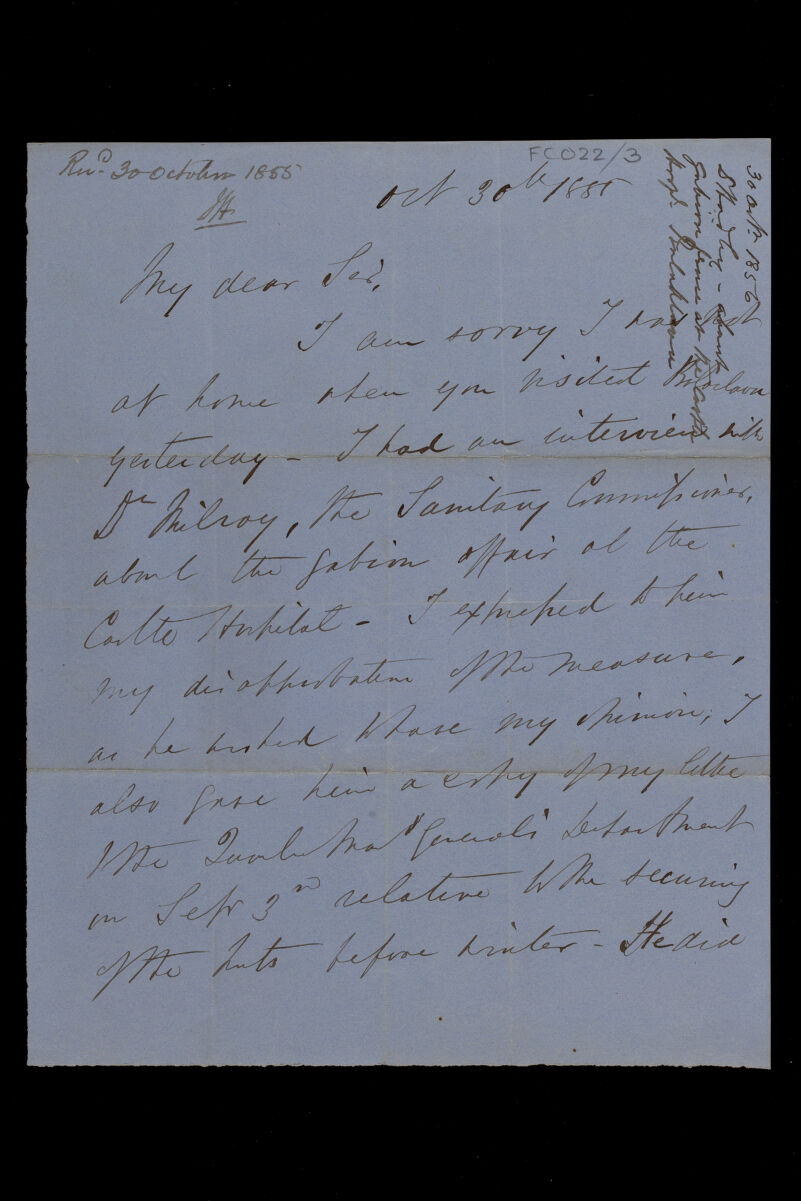 Recd. 30 October 1855
JH
FCO22/3
30 Octr. 1855
Dr Hadley - about
Gabion fence at the Castle
Hospl. Balaklava
Oct 30th 1855
My dear Sir,
I am sorry I was not
at home when you visited Balaclava
yesterday - I had an interview with
Dr Milroy, the Sanitary Commissioner,
about the gabion affair at the
Castle Hospital - I expressed to him
my disapprobation of the measure,
as he wished to have my opinion; I
also gave him a copy of my letter
to the Quarter Mas Generals Department
on Sepr 3rd relative to the securing
of the huts before winter - He did